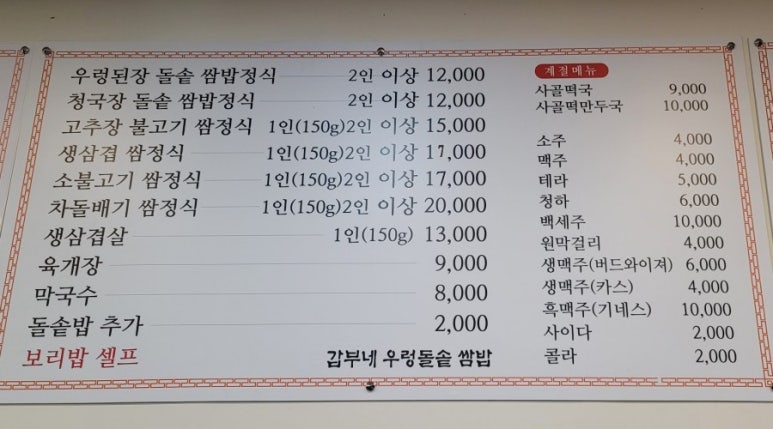 우렁된장 돌솥 쌈밥정식 2인 이상 12,000
청국장 돌솥 쌈밥정식 2인 이상 12,000
고추장 불고기 쌈정식 1인(150g)2인 이상 15,000
생삼겹 쌈정식 1인(150g)2인 이상 17,000
소불고기 쌈정식 1인(150g)2인 이상 17,000
차돌배기 쌈정식 1인(150g)2인 이상 20,000
생삼겹살 1인(150g) 13,000
육개장 9,000
막국수 8,000
돌솥밥 추가 2,000
보리밥 셀프 갑부네 우렁돌솥 쌈밥
계절메뉴
사골떡국 9,000
사골떡만두국 10,000
소주 4,000
맥주 4,000
테라 5,000
청하 6,000
백세주 10,000
원막걸리 4,000
생맥주(버드와이져) 6,000
생맥주(카스) 4,000
흑맥주(기네스) 10,000
사이다 2,000
콜라 2,000